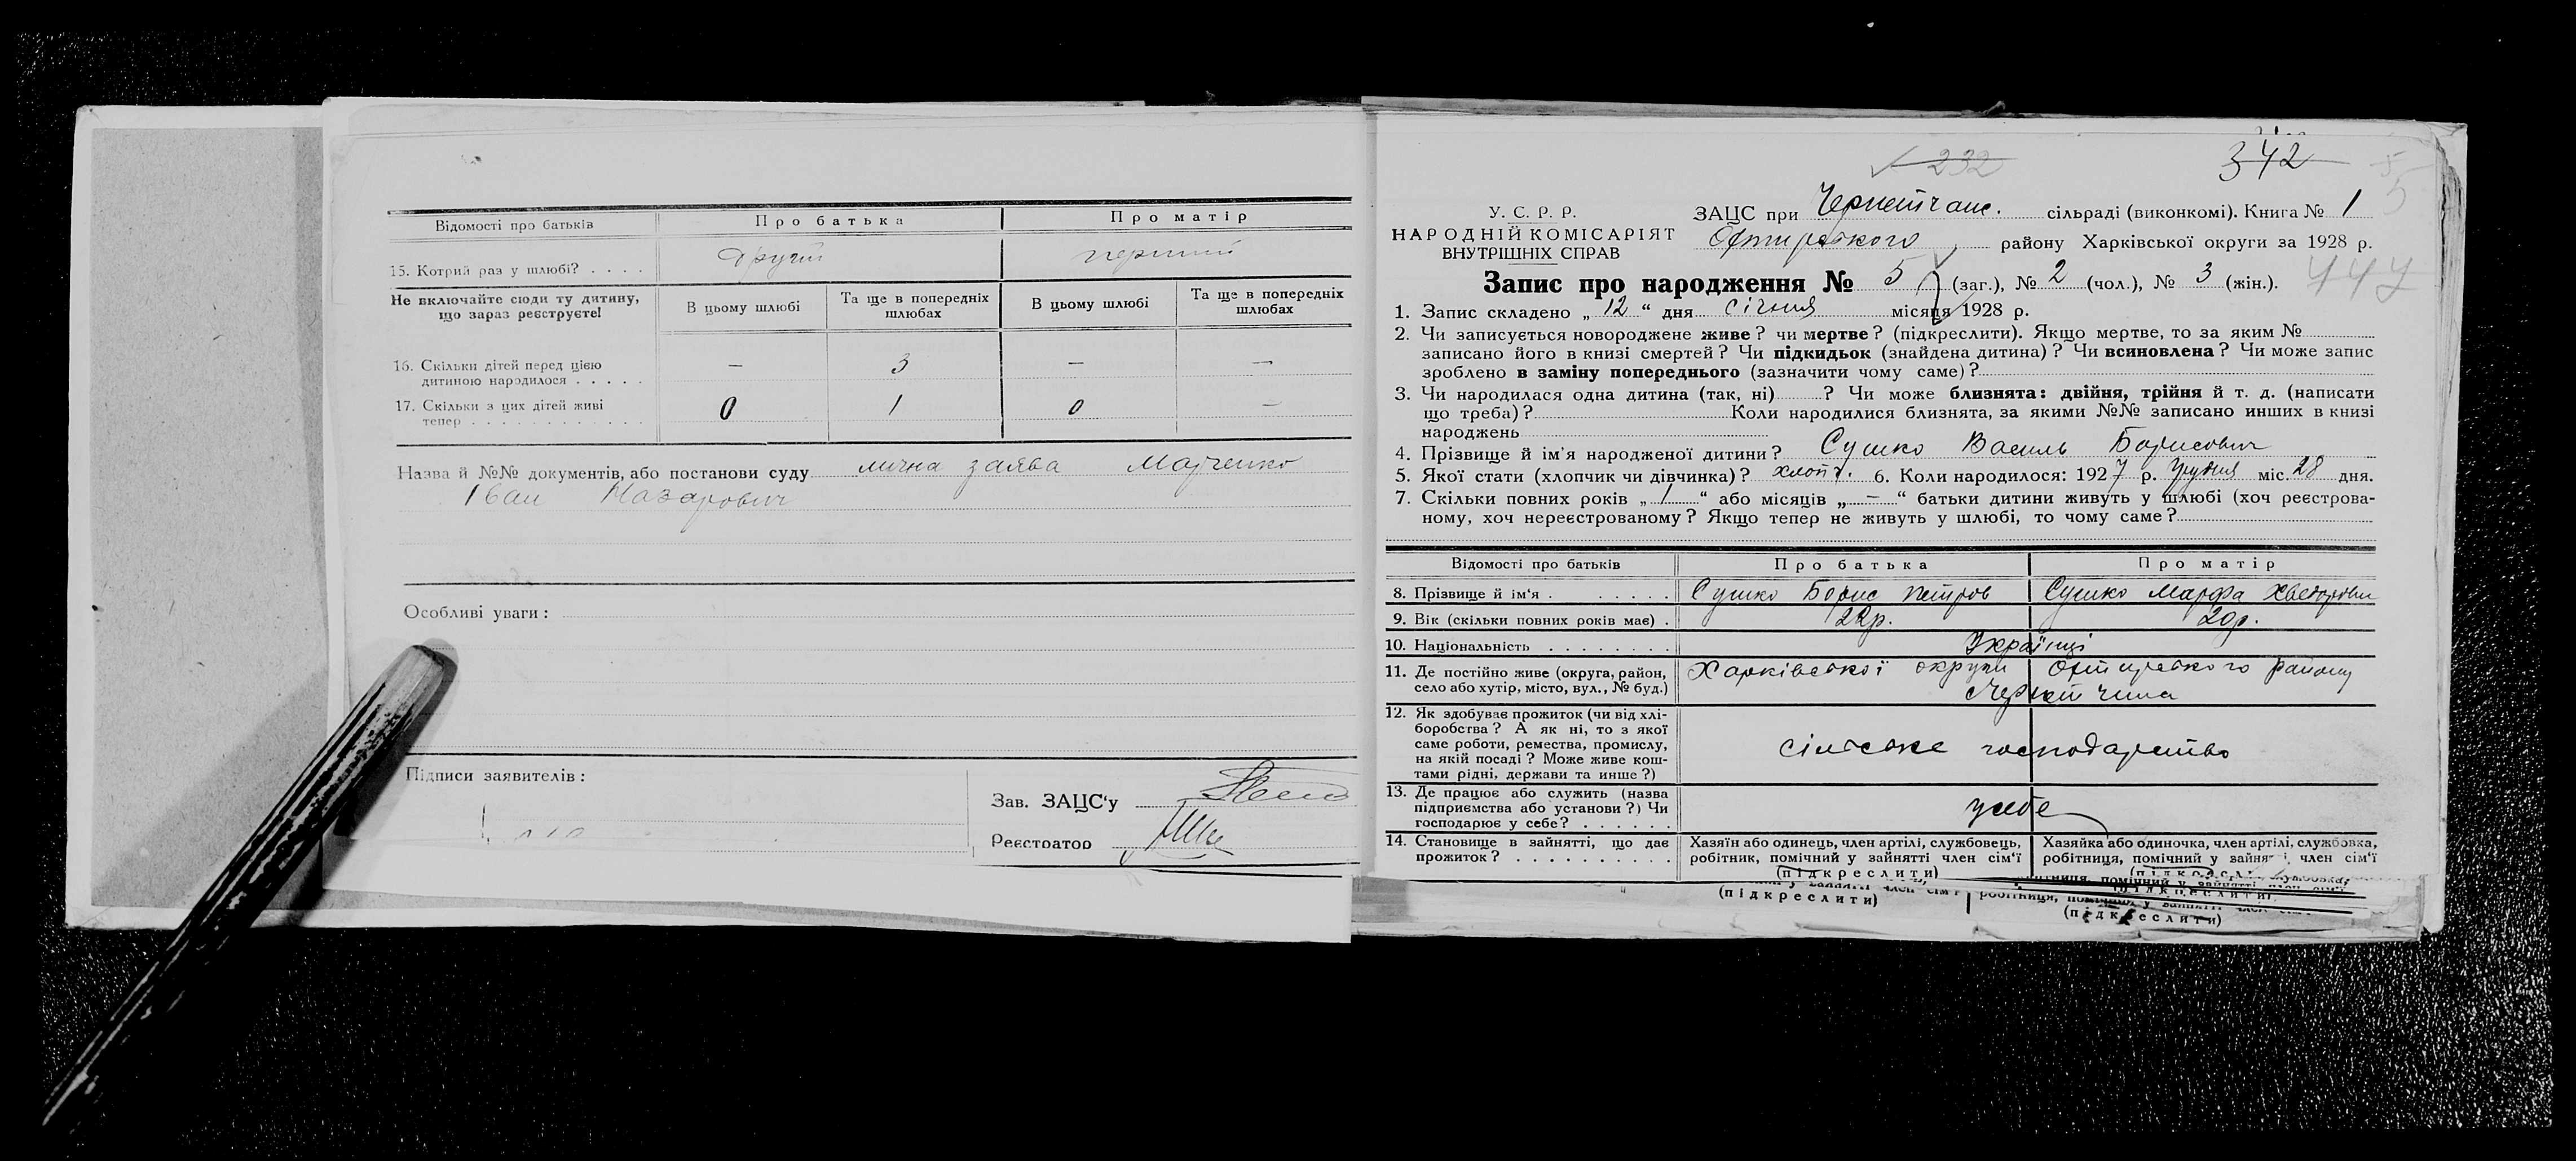 Відомості про батьків Про батька Про матір
15. Котрий раз у шлюбі? . . . . другий перший
Не включайте сюди ту дитину, що зараз реєструєте! В цьому шлюбі Та ще в попередніх шлюбах В цьому шлюбі Та ще в попередніх шлюбах
16. Скільки дітей перед цією
дитиною народилося . . . . . — 3 — —
17. Скільки з цих дітей живі
тепер . . . . . . . . . . . . 0 1 0 —
Назва й №№ документів, або постанови суду лична заява Марченко
Іван Назарович
Особливі уваги:
Підписи заявителів:
Зав. ЗАЦС'у
Реєстратор
232
342
5
5
У. С. Р. Р.
НАРОДНІЙ КОМІСАРІЯТ
ВНУТРІШНІХ СПРАВ
ЗАЦС при Чернетчанс. сільраді (виконкомі). Книга № 1
Охтирського району Харківської округи за 1928 р.
447
Запис про народження № 5 (заг.), № 2 (чол.), № 3 (жін.).
1. Запис складено „12“ дня січня місяця 1928 р.
2. Чи записується новороджене живе? чи мертве? (підкреслити). Якщо мертве, то за яким №
записано його в книзі смертей? Чи підкидьок (знайдена дитина)? Чи всиновлена? Чи може запис
зроблено в заміну попереднього (зазначити чому саме)?
3. Чи народилася одна дитина (так, ні) ? Чи може близнята: двійня, трійня й т. д. (написати
що треба)? Коли народилися близнята, за якими №№ записано инших в книзі
народжень
4. Прізвище й ім'я народженої дитини? Сушко Василь Борисович
5. Якої стати (хлопчик чи дівчинка)? хлопч. 6. Коли народилося: 1927 р. грудня міс. 28 дня.
7. Скільки повних років „1“ або місяців „—“ батьки дитини живуть у шлюбі (хоч реєстрова-
ному, хоч нереєстрованому? Якщо тепер не живуть у шлюбі, то чому саме?
Відомості про батьків Про батька Про матір
8. Прізвище й ім'я . . . . . . Сушко Борис Петров Сушко Марфа Хведоровн
9. Вік (скільки повних років має) . 22р. 20р.
10. Національність . . . . . . . . Українці
11. Де постійно живе (округа, район, Харківської округи Охтирського району
село або хутір, місто, вул., № буд.) Чернетчина
12. Як здобуває прожиток (чи від хлі-
боробства? А як ні, то з якої
саме роботи, ремества, промислу, сільське господарство
на якій посаді? Може живе кош-
тами рідні, держави та инше?)
13. Де працює або служить (назва
підприємства або установи?) Чи у себе
господарює у себе? . . . . . .
14. Становище в зайнятті, що дає Хазяїн або одинець, член артілі, службовець, Хазяйка або одиночка, член артілі, службовка,
прожиток? . . . . . . . . . . робітник, помічний у зайнятті член сім'ї робітниця, помічний у зайнятті, член сім'ї
(підкреслити)
(підкреслити)
(підкреслити)